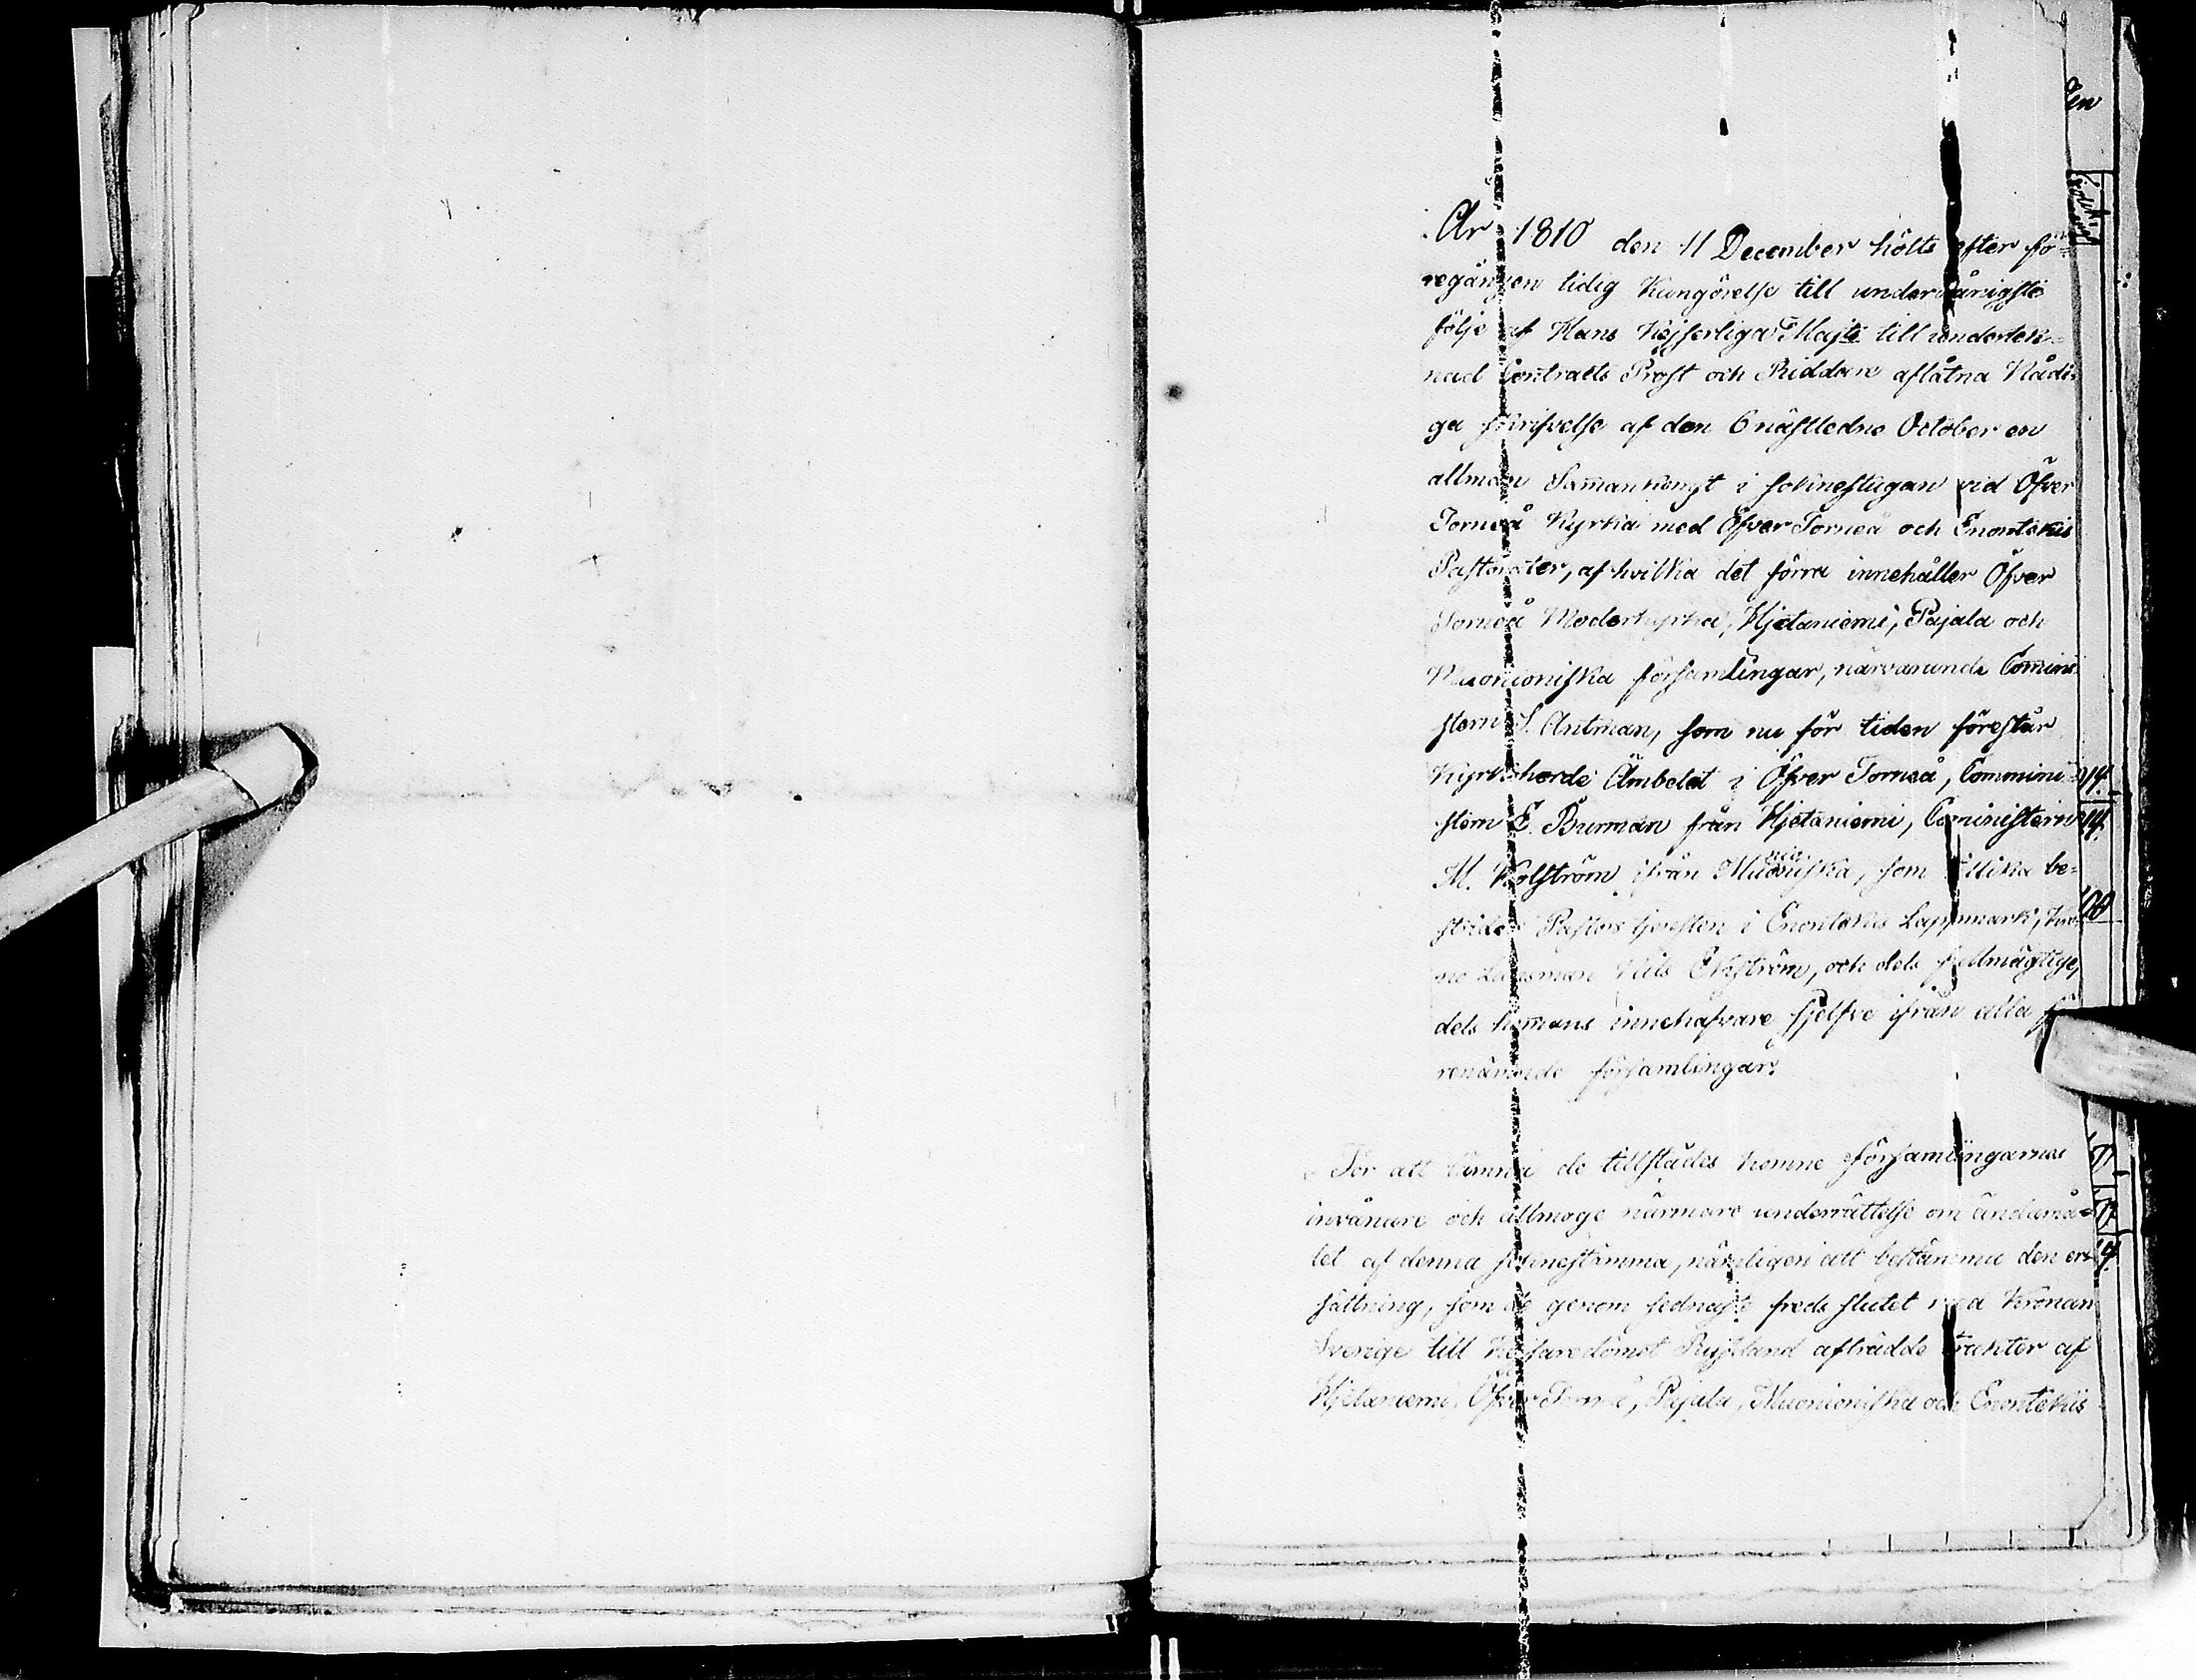 År 1810 den 11 December hölts efter fö-
regången tidig Kungörelse till underdånigste
följe af Hans Kejserliga Majts till undertek-
nad Contracts Prost och Riddare aflåtna Nådi-
ga skrifvelse af den 6 nästledne October en
allmän Samankomst i soknestugan vid Öfver
Torneå Kyrka med Öfver Torneå och Enontekis
Pastorater, af hvilka det förra innehåller Öfver
Torneå Moderkyrka, Hjetaniemi, Pajala och
Muonioniska församlingar, närvarande Commini-
stern S. Antman, som nu för tiden förestår
Kyrkoherde Ämbetet i Öfver Torneå, Commini-
stern E. Burman från Hjetaniemi, Comministern
M. Kolström ifrån Muonioniska, som tillika be-
strider Pastors tjensten i Enontekis Lappmark, Kro-
no Länsman Nils Ekström, och dels fullmägtige,
dels hemans innehafvare sjelfve ifrån alla fö-
renämnde församlingar.
För att lämna de tillstädes komne församlingarnas
invånare och allmoge närmare underrättelse om ändamå-
let af denna soknestämma, nämligen att bestämma den er-
sättning, som de genom sednaste freds slutet med Kronan
Sverige till Kejsaredömet Ryssland afträdde trakter af
Hjetaniemi, Öfver Torneå, Pajala, Muonioniska och Enontekis